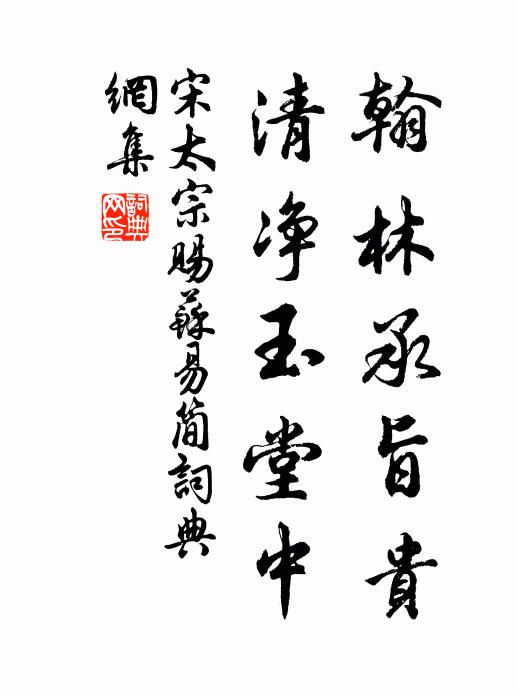 翰林承旨貴
清净玉堂中
宋太宗賜蘇易简詞典
網集
詞典网印